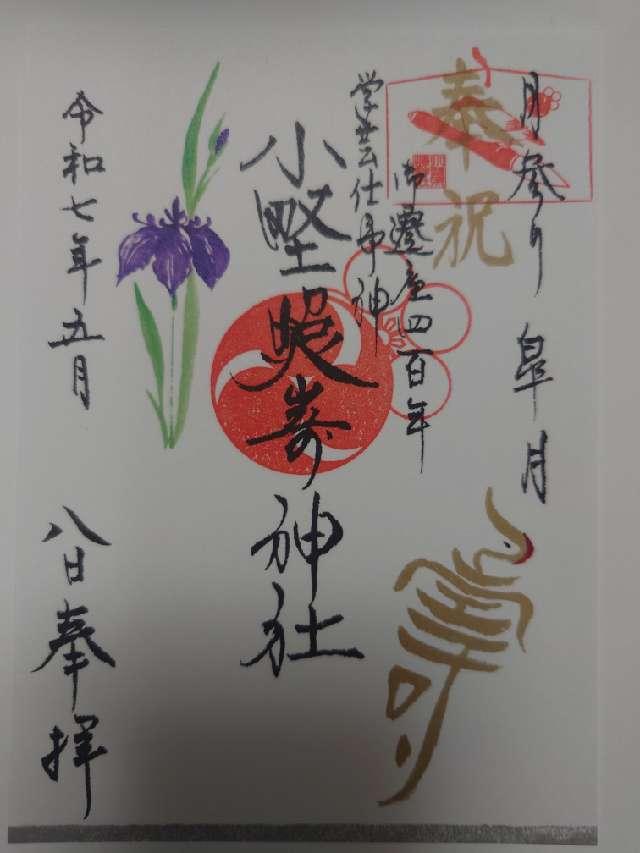 月参り 皐月
奉祝
御遷座四百年
学芸仕事神
小野照嵜神社
令和七年五月
八日奉拝
壽